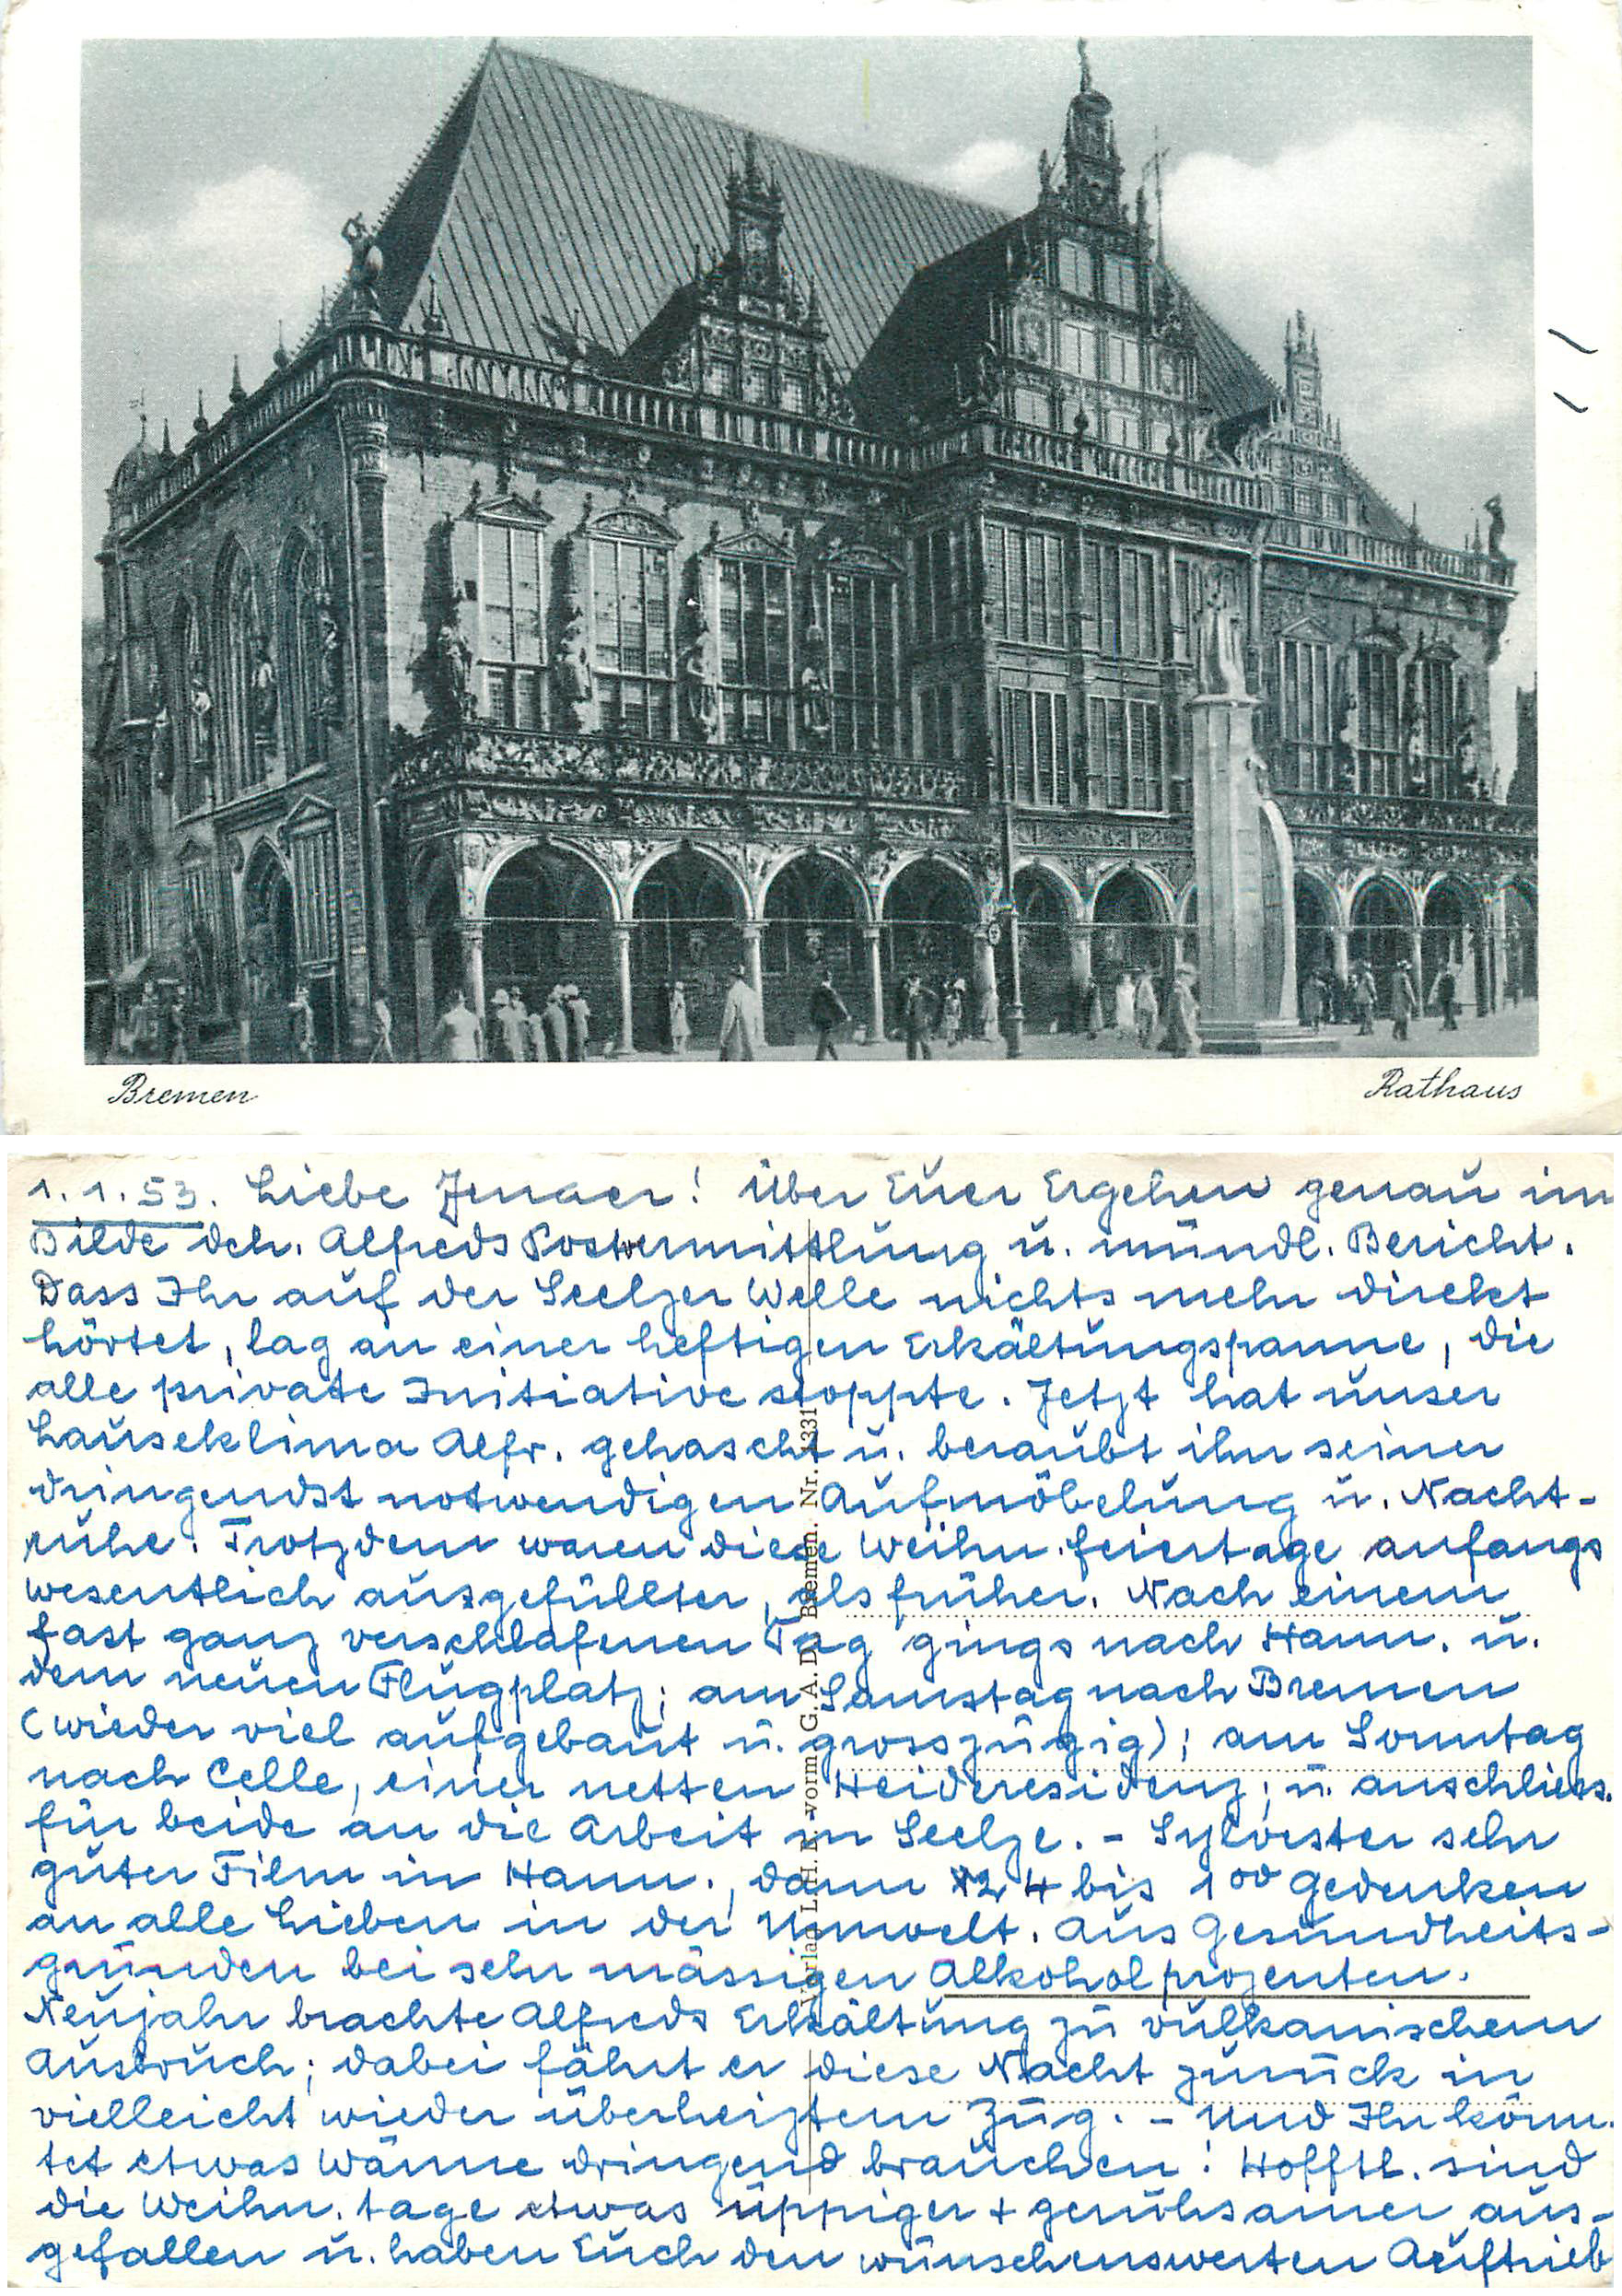 Bremen
Rathaus
1.1.53. Liebe Jenaer! Über Euer Ergehen genau im
Bilde dch. Alfreds Postvermittlung u. mündl. Bericht.
Dass Ihr auf der Seelzer Welle nichts mehr direkt
hörtet, lag an einer heftigen Erkältungspanne, die
alle private Initiative stoppte. Jetzt hat unser
Lauseklima Alfr. gehascht u. beraubt ihn seiner
dringendst notwendigen Aufmöbelung u. Nacht-
ruhe. Trotzdem waren diese Weihn.feiertage anfangs
wesentlich ausgefüllter, als früher. Nach einem
fast ganz verschlafenen Tag gings nach Hann. u.
dem neuen Flugplatz; am Samstag nach Bremen
(wieder viel aufgebaut u. grosszügig); am Sonntag
nach Celle, einer netten Heideresidenz; u. anschliess.
für beide an die Arbeit in Seelze. - Sylvester sehr
guter Film in Hann., dann 24 bis 1⁰⁰ Gedenken
an alle Lieben in der Umwelt. Aus Gesundheits-
gründen bei sehr mässigen Alkoholprozenten.
Neujahr brachte Alfreds Erkältung zu vulkanischem
Ausbruch; dabei fährt er diese Nacht zurück in
vielleicht wieder überheiztem Zug. - Und Ihr könn-
tet etwas Wärme dringend brauchen! Hofftl. sind
die Weihn.tage etwas üppiger + geruhsamer aus-
gefallen u. haben Euch den wünschenswerten Auftrieb
Verlag L. H. K. vorm G. A. D. Bremen. Nr. 1331